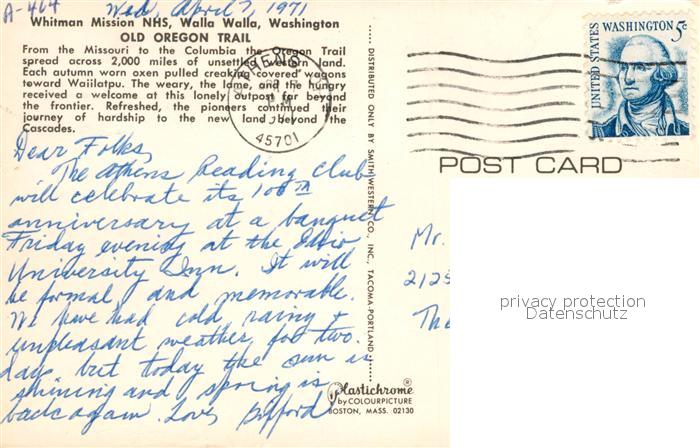 A-464 Wed, April 7, 1971
Whitman Mission NHS, Walla Walla, Washington
OLD OREGON TRAIL
From the Missouri to the Columbia the Oregon Trail
spread across 2,000 miles of unsettled western land.
Each autumn worn oxen pulled creaking covered wagons
toward Waiilatpu. The weary, the lame, and the hungry
received a welcome at this lonely outpost far beyond
the frontier. Refreshed, the pioneers continued their
journey of hardship to the new land beyond the
Cascades.
ATHENS
45701
UNITED STATES
WASHINGTON 5c
POST CARD
DISTRIBUTED ONLY BY SMITH-WESTERN CO., INC., TACOMA-PORTLAND
Dear Folks,
The Athens Reading Club
will celebrate its 100th
anniversary at a banquet
Friday evening at the Ohio
University Inn. It will
be formal and memorable.
We have had cold, rainy &
unpleasant weather for two
days but today the sun is
shining and spring is
back again. Love,
Mr.
2125
The
privacy protection
Datenschutz
Plastichrome
by COLOURPICTURE
BOSTON, MASS. 02130